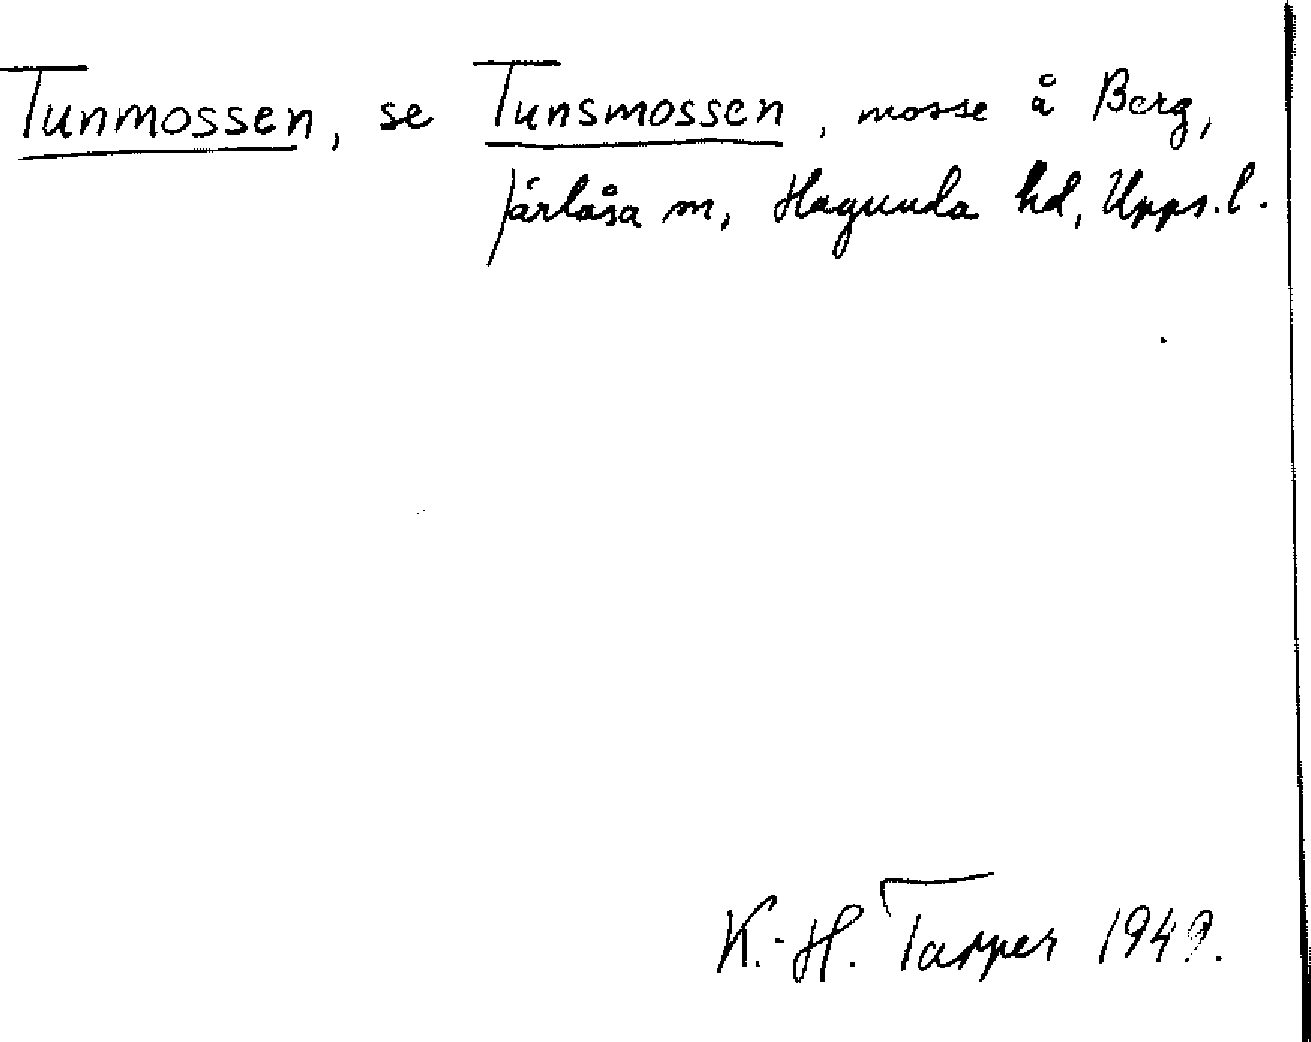 Tunmossen, se Tunsmossen, mosse å Berg,
Järlåsa sn, Hagunda hd, Upps.l.
K.-H. Tapper 1949.